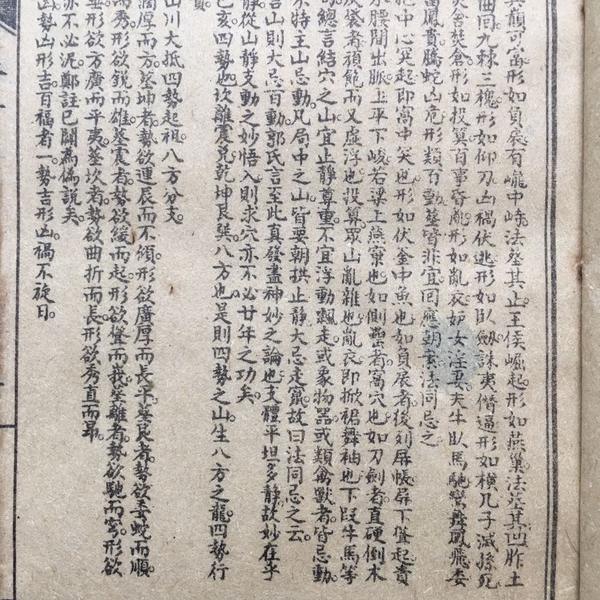 其顛可富形如負扆有壠中峙法葬其止王侯崛起形如燕巢法葬其凹胙土
曲回九棘三槐形如仰刀凶禍伏逃形如臥劍誅夷僭逼形如橫几子滅孫死
灾舍焚倉形如投算百事昏亂形如亂衣妒女淫妻夫牛臥馬馳鸞舞鳳飛委
富鳳貴騰蛇凶危形類百動葬皆非宜四應前案法同忌之
也中心突起即窩中突也形如伏釜中魚也如負扆者後列屏帳屏下聳起貴
水腰間出脈上平下峻若梁上燕窠也如側罍者窩穴也如刀劍者直硬倒木
灰袋者頑飽而又虛浮也投算眾山亂雜也亂衣即掀裙舞袖也下段牛馬等
句總言結穴之山宜止靜尊重不宜浮動飄走或象物器或類禽獸者皆忌動
不特主山忌動凡局中之山皆要朝拱止靜大忌走竄故曰法同忌之云
言山則大忌百動郭氏言至此真發盡神妙之論也支體平坦多靜故妙在乎
靜從山靜支動之妙悟入則求穴亦不必廿年之功矣
巳亥四勢也坎離震兌乾坤艮巽八方也是則四勢之山生八方之龍四勢行
貴
山川大抵四勢起祖八方分支
闊厚而方葬坤者勢欲連辰而不傾形欲廣厚而長平葬艮者勢欲委蛇而順
而秀形欲銳而雄葬震者勢欲緩而起形欲聳而峩葬離者勢欲馳而穹形欲
委形欲方廣而平夷葬坎者勢欲曲折而長形欲秀直而昂
亦不必泥鄭註已闢為偽說矣
凶勢凶形吉百福者一勢吉形凶禍不旋日